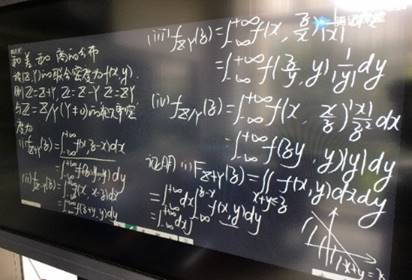 和差积商的分布
设(X,Y)的联合密度为f(x,y).
则Z=X+Y, Z=X-Y Z=XY
与Z=X/Y(Y≠0)的概率密
度为
(i) f_{X+Y}(z)=∫_{-∞}^{+∞} f(x,z-x)dx
=∫_{-∞}^{+∞} f(z-y,y)dy
(ii) f_{X-Y}(z)=∫_{-∞}^{+∞} f(x,x-z)dx
=∫_{-∞}^{+∞} f(z+y,y)dy
(iii) f_{XY}(z)=∫_{-∞}^{+∞} f(x,z/x)1/|x|
=∫_{-∞}^{+∞} f(z/y,y)1/|y| dy
(iv) f_{X/Y}(z)=∫_{-∞}^{+∞} f(x,x/z)|x|/z² dx
=∫_{-∞}^{+∞} f(zy,y)|y|dy
证明 (i) F_{X+Y}(z)=∬_{x+y≤z} f(x,y)dxdy
=∫_{-∞}^{+∞}dx∫_{-∞}^{z-x} f(x,y)dy
=∫_{-∞}^{+∞}dx∫
x+y=z